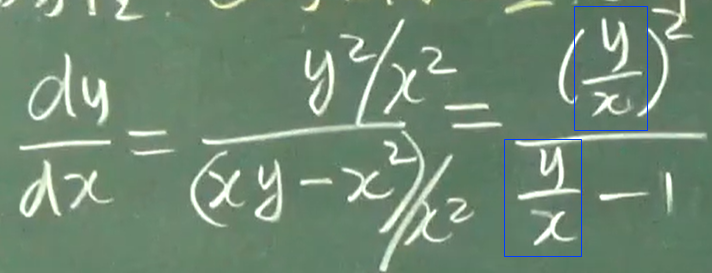 dy/dx = (y²/x²)/((xy-x²)/x²) = (y/x)²/(y/x - 1)